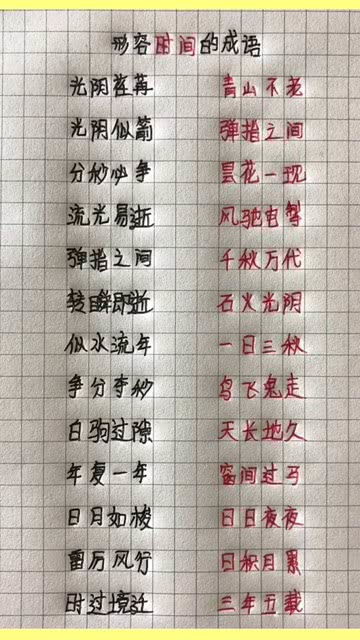 形容时间的成语
光阴荏苒 青山不老
光阴似箭 弹指之间
分秒必争 昙花一现
流光易逝 风驰电掣
弹指之间 千秋万代
转瞬即逝 石火光阴
似水流年 一日三秋
争分夺秒 鸟飞鬼走
白驹过隙 天长地久
年复一年 窗间过马
日月如梭 日日夜夜
雷厉风行 日积月累
时过境迁 三年五载